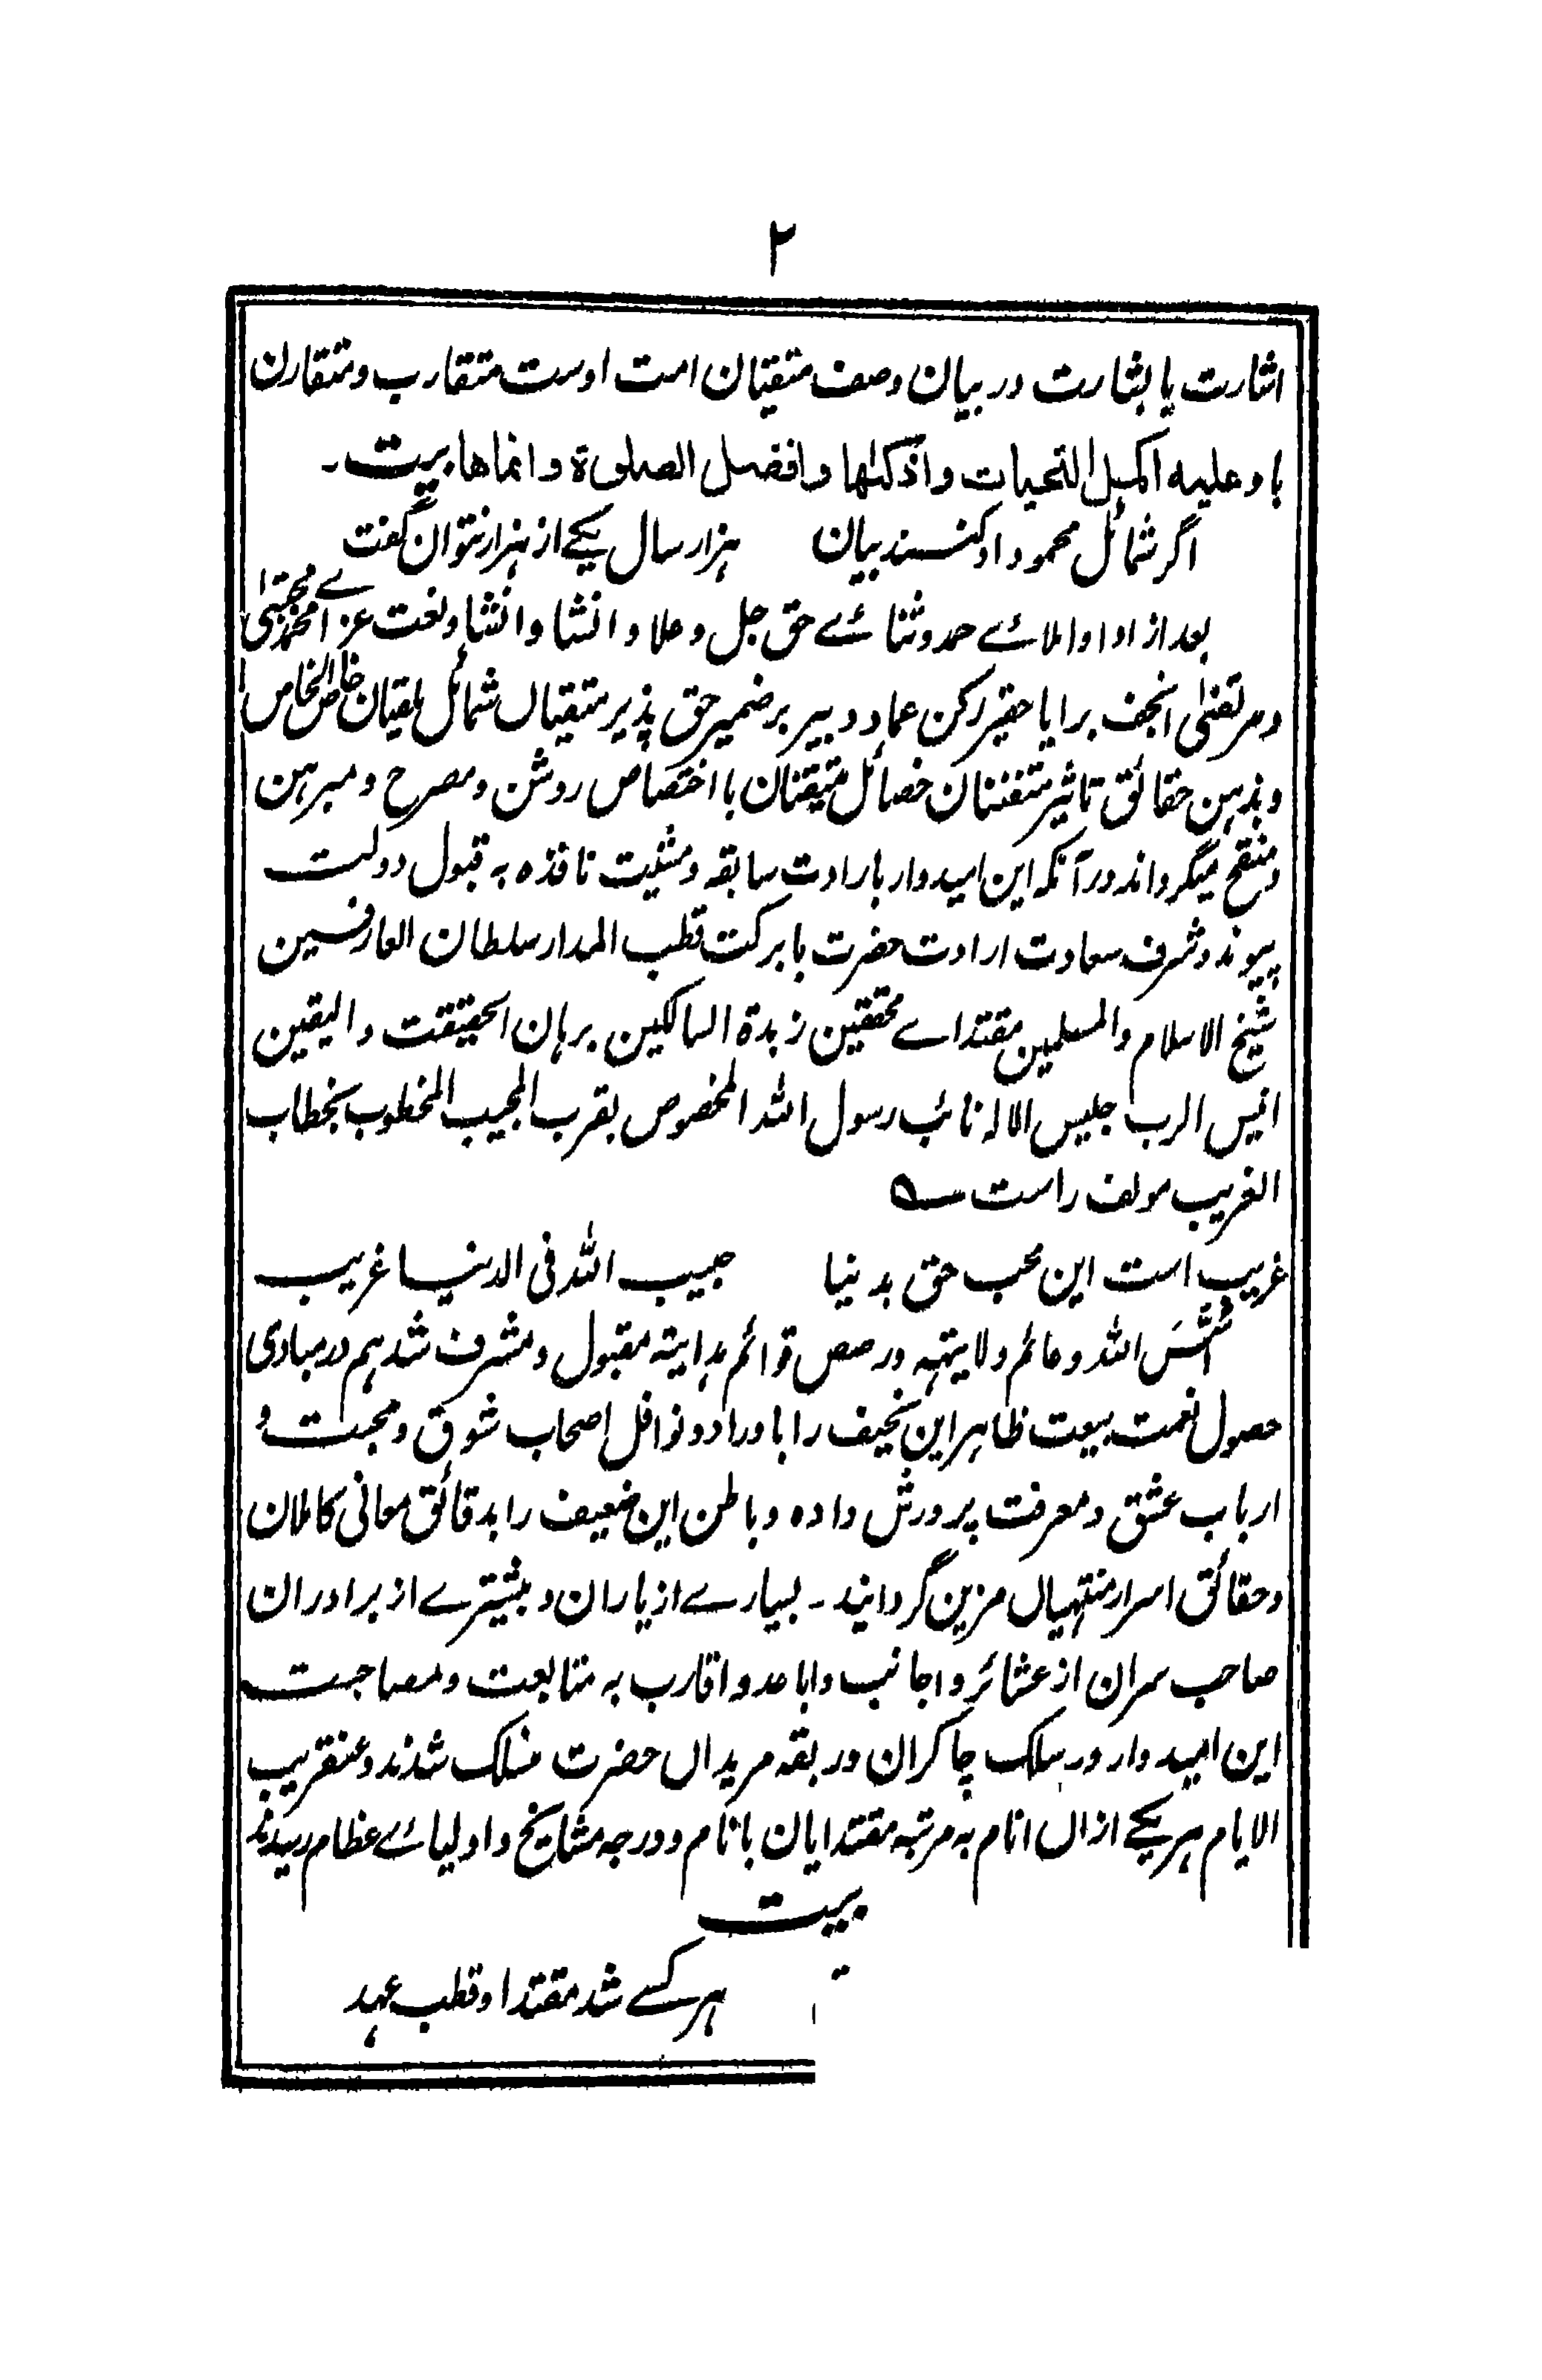 ۲
اشارت با بشارت در بیان وصف متقیان امت اوست متقارب و متقارن
باد علیه اکمل التحیات و اذکٰها و افضل الصلوة و انماها بیت ۔
اگر شمائل محمود او کنند بیان هزار سال یکے از هزار نتوان گفت
بعد از ادا و املائے حمد و ثنائے حق جل و علا و انشا و انشا و نعت عزاے محمد مجتبیٰ
و مرتضیٰ انجف برایا حقیر رکن عماد دبیر بر ضمیر حق پذیر متقیاں شمائل بلقیان خاص الخاص
و بذہن حقائق تاثیر متفننان خصائل متیقنان با اختصاص روشن و مصرح و مبرہن
و منقح میگرداند در آنکہ این امیدوار بارادت سابقہ و مشیت نافذہ بہ قبول دولت
پیوند و شرف سعادت ارادت حضرت با برکت قطب المدار سلطان العارفین
شیخ الاسلام والمسلمین مقتداے محققین زبدة السالکین برہان الحقیقت والیقین
انیس الرب جلیس الالہ نائب رسول اللہ المخصوص بقرب المجیب المخطوب بخطاب
الغریب مولف راست ؎
غریب است این محب حق بدنیا حبیب اللہ فی الدنیا غریب
اسس اللہ دعائم ولایتہہ ورصص قوائم ہدایتہ مقبول و مشرف شد ہم در مبادی
حصول نعمت بیعت ظاہر این نحیف را باوراد و نوافل اصحاب شوق و محبت و
ارباب عشق و معرفت پرورش دادہ و باطن این ضعیف را بدقائق معانی کاملان
و حقائق اسرار منتہیاں مزین گردانید ۔ بسیارے از یاران و بیشترے از برادران
صاحب سران از عشائر و اجانب و اباعد و اقارب بہ متابعت و مصاحبت
این امیدوار در سلک چاکران و ربقہ مریداں حضرت منسلک شدند و عنقریب
الایام ہر یکے ازاں انام بہ مرتبہ مقتدایان با نام و درجہ مشایخ و اولیاے عظام رسیدند
بیت
ہر کسے شد مقتدا و قطب عہد